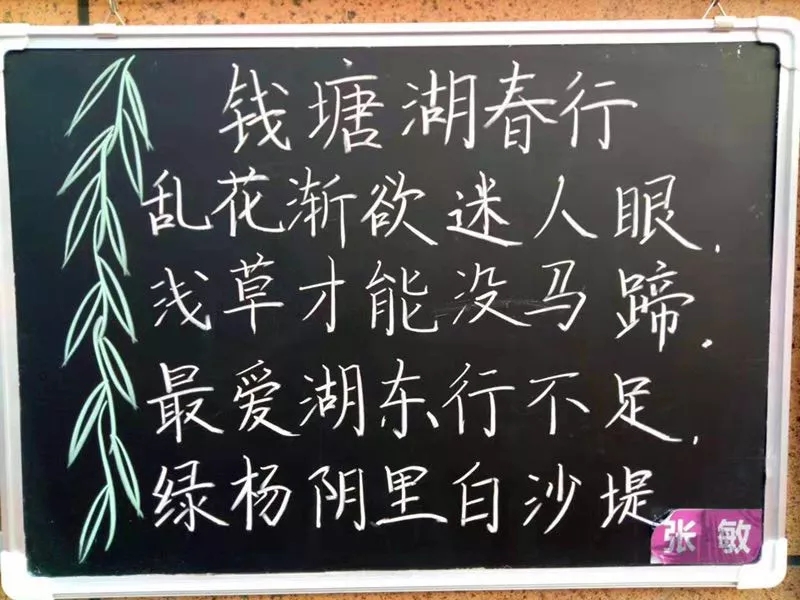 钱塘湖春行
乱花渐欲迷人眼.
浅草才能没马蹄.
最爱湖东行不足.
绿杨阴里白沙堤
张敏